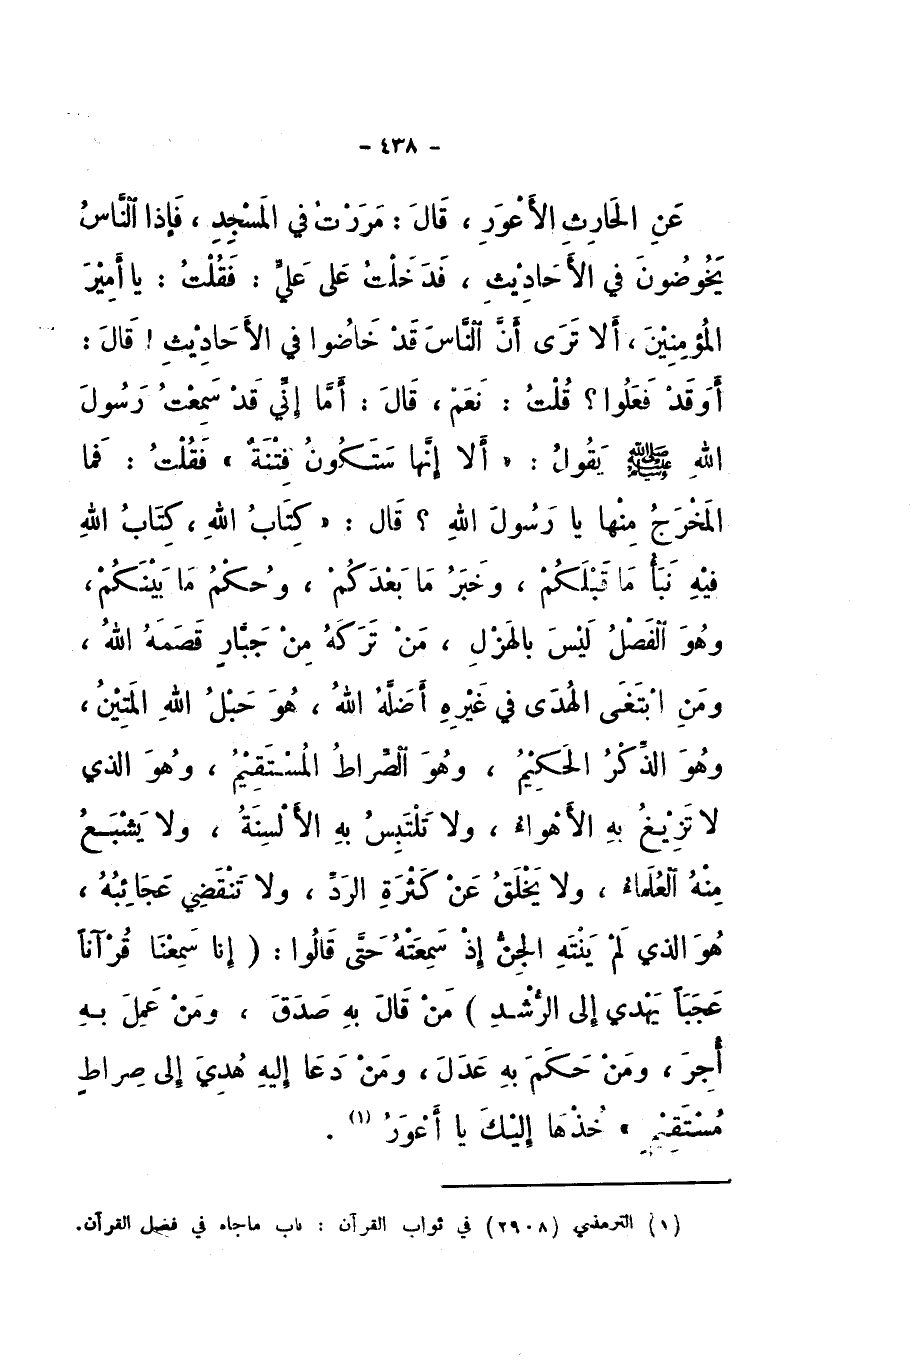 - ٤٣٨ -
عَنِ الحَارِثِ الأَعْوَرِ ، قَالَ : مَرَرْتُ في المَسْجِدِ ، فَإِذا النَّاسُ
يَخُوضُونَ في الأَحَادِيْثِ ، فَدَخَلْتُ عَلى عَليٍّ : فَقُلْتُ : يا أَمِيْرَ
المُؤمِنِيْنَ ، أَلا تَرَى أَنَّ النَّاسَ قَدْ خَاضُوا في الأَحَادِيْثِ ! قَالَ :
أَوَقَدْ فَعَلُوا ؟ قُلْتُ : نَعَمْ ، قَالَ : أَمَّا إِنِّي قَدْ سَمِعْتُ رَسُولَ
اللهِ ﷺ يَقُولُ : « أَلا إِنَّها سَتَكُونُ فِتْنَةٌ » فَقُلْتُ : فَمَا
المَخْرَجُ مِنْها يا رَسُولَ اللهِ ؟ قال : « كِتَابُ اللهِ ، كِتَابُ اللهِ
فِيْهِ نَبَأُ مَا قَبْلَكُمْ ، وخَبَرُ مَا بَعْدَكُمْ ، وحُكمُ مَا بَيْنَكُمْ ،
وهُوَ الفَصْلُ لَيْسَ بالهَزْلِ ، مَنْ تَرَكَهُ مِنْ جَبَّارٍ قَصَمَهُ اللهُ ،
ومَنِ ابْتَغَى الهُدَى في غَيْرِهِ أَضَلَّهُ اللهُ ، هُوَ حَبْلُ اللهِ المَتِيْنُ ،
وهُوَ الذِّكْرُ الحَكِيْمُ ، وهُوَ الصِّراطُ المُسْتَقِيْمُ ، وهُوَ الذي
لا تَزِيْغُ بهِ الأَهْواءُ ، ولا تَلْتَبِسُ بهِ الأَلْسِنَةُ ، ولا يَشْبَعُ
مِنْهُ العُلَماءُ ، ولا يَخْلَقُ عَنْ كَثْرَةِ الرَدِّ ، ولا تَنْقَضِي عَجَائِبُهُ ،
هُوَ الذي لَمْ يَنْتَهِ الجِنُّ إِذْ سَمِعَتْهُ حَتَّى قَالُوا : ( إِنا سَمِعْنَا قُرْآناً
عَجَبَاً يَهْدي إِلى الرُّشْدِ ) مَنْ قَالَ بهِ صَدَقَ ، ومَنْ عَمِلَ بهِ
أُجِرَ ، ومَنْ حَكَمَ بهِ عَدَلَ ، ومَنْ دَعَا إِليهِ هُدِيَ إِلى صِراطٍ
مُسْتَقِيْمٍ » خُذْهَا إِلَيْكَ يا أَعْوَرُ (١) .
(١) الترمذي (٢٩٠٨) في ثواب القرآن : باب ماجاء في فضل القرآن.